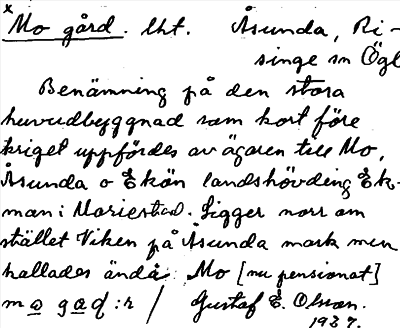 x
Mo gård. lht. Åsunda, Ri-
singe sn Ögl
Benämning på den stora
huvudbyggnad som kort före
kriget uppfördes av ägaren till Mo,
Åsunda o Ekön landshövding Ek-
man i Mariestad. Ligger norr om
stället Viken på Åsunda mark men
kallades ändå: Mo [nu pensionat]
m o g a d :r / Gustaf E. Olsson.
1937.